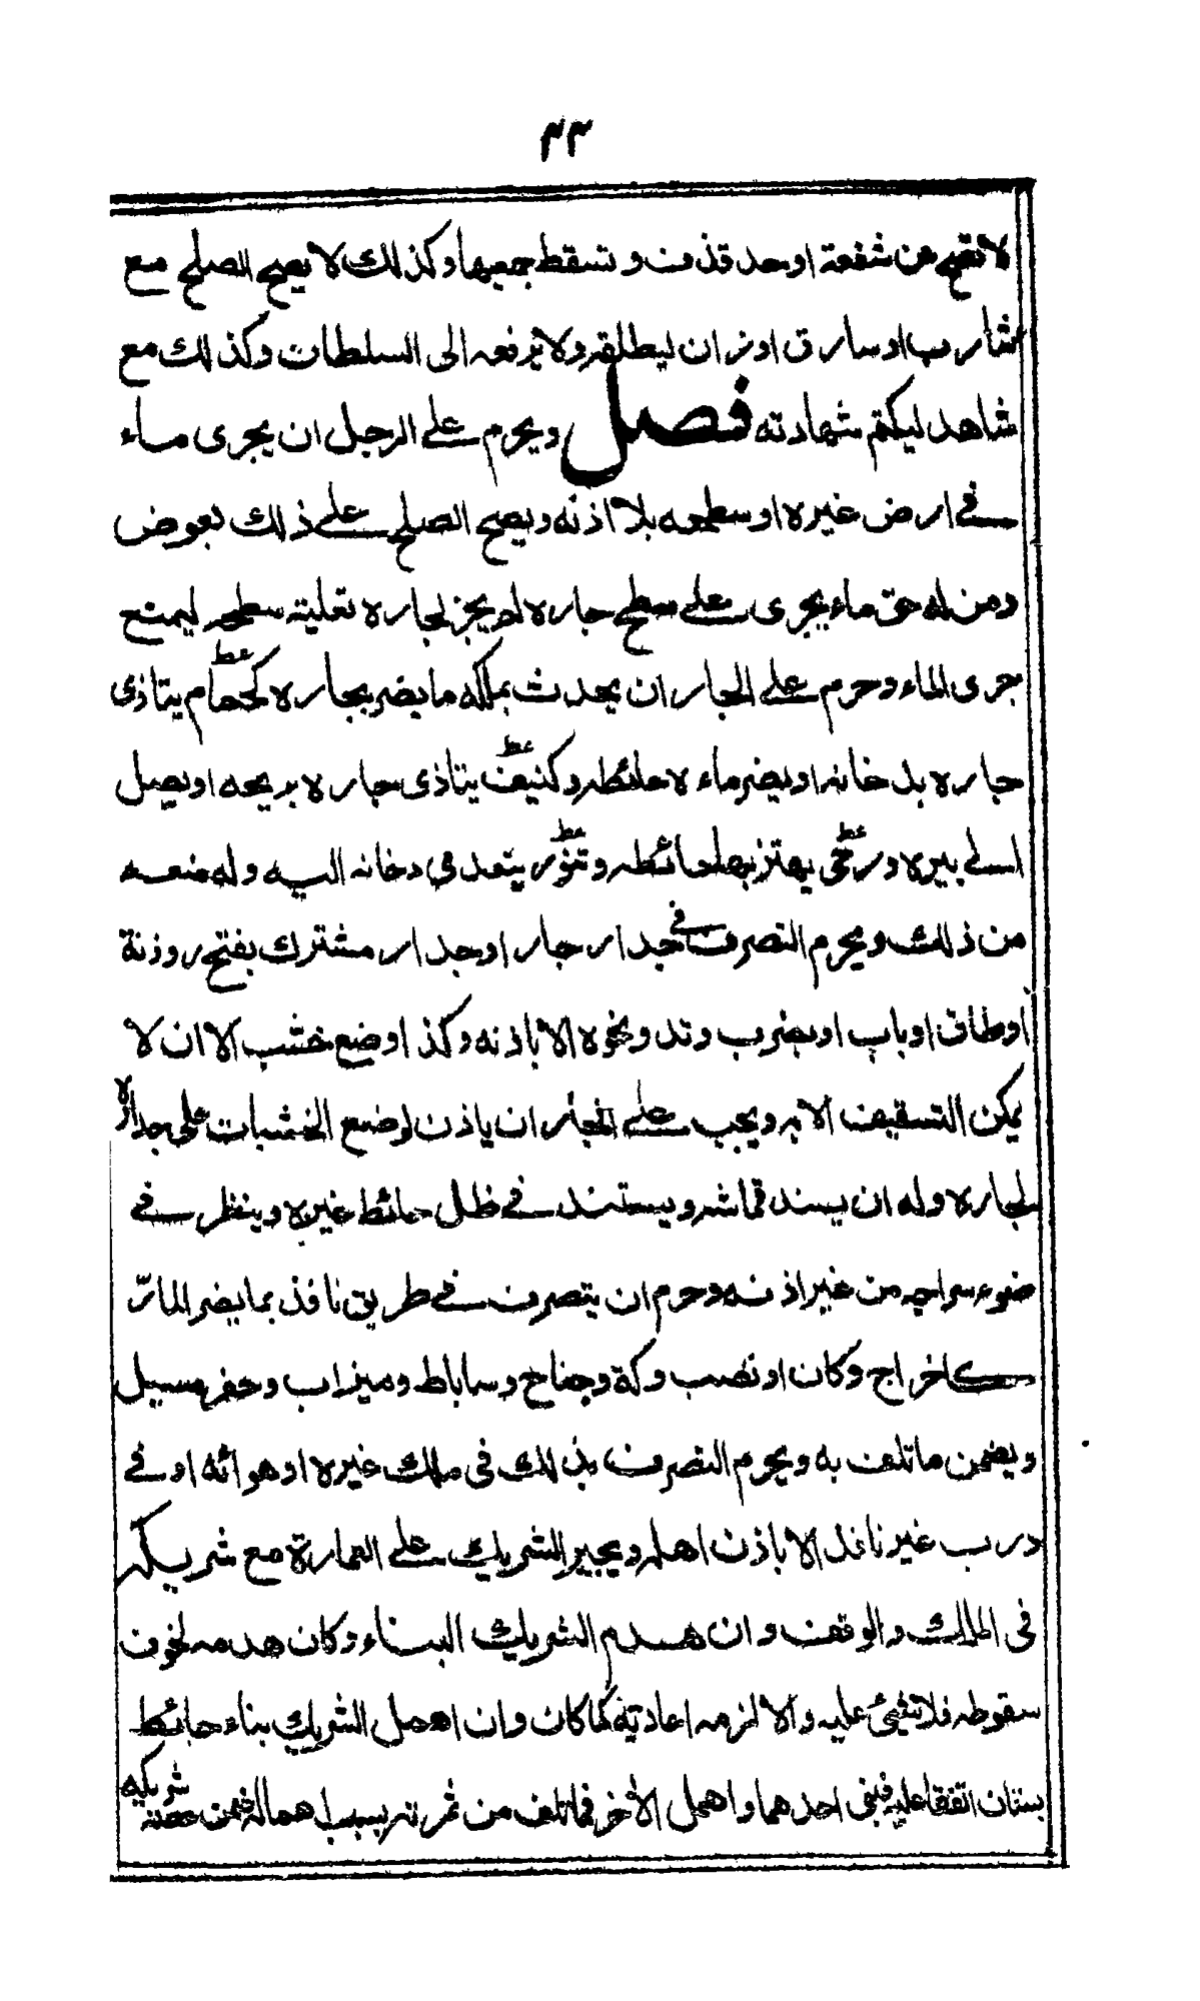 ٣٣
لا تصح عن شفعة او حد قذف وتسقط جميعها وكذلك لا يصح الصلح مع
شارب او سارق او زان ليطلقه ولا يرفعه الى السلطان وكذلك مع
شاهد ليكتم شهادته فصل ويحرم على الرجل ان يجرى ماء
فى ارض غيره او سطحه بلا اذنه ويصح الصلح على ذلك بعوض
ومن له حق ماء يجرى على سطح جاره لم يجز لجاره تعلية سطحه ليمنع
جرى الماء وحرم على الجار ان يحدث بملكه ما يضر بجاره كحمام يتاذى
جاره بدخانه او يضر ماءه حائطه وكنيف يتاذى جاره بريحه او يصل
الى بيره ورحى يهتز بها حائطه وتنور يتعدى دخانه اليه وله منعه
من ذلك ويحرم التصرف فى جدار جار او جدار مشترك بفتح روزنة
او طاق او باب او بضرب وتد ونحوه الا باذنه وكذا وضع خشب الا ان لا
يمكن التسقيف الا به ويجب على الجار ان ياذن لوضع الخشبات على جداره
لجاره وله ان يسند قماشه ويستند فى ظل حائط غيره وينظر فى
ضوء سراجه من غير اذنه وحرم ان يتصرف فى طريق نافذ بما يضر المارّ
كاخراج دكان او نصب دكة وجناح وساباط وميزاب وحفر مسيل
ويضمن ما تلف به ويحرم التصرف بذلك فى ملك غيره او هوائه او فى
درب غير نافذ الا باذن اهله ويجبر الشريك على العمارة مع شريكه
فى الملك والوقف وان هدم الشريك البناء وكان هدمه لخوف
سقوطه فلا شئ عليه والا لزمه اعادته كما كان وان اهمل الشريك بناء حائط
بستان اتفقا عليه فبنى احدهما واهمل الأخر فما تلف من ثمرته بسبب اهماله ضمن حصة شريكه